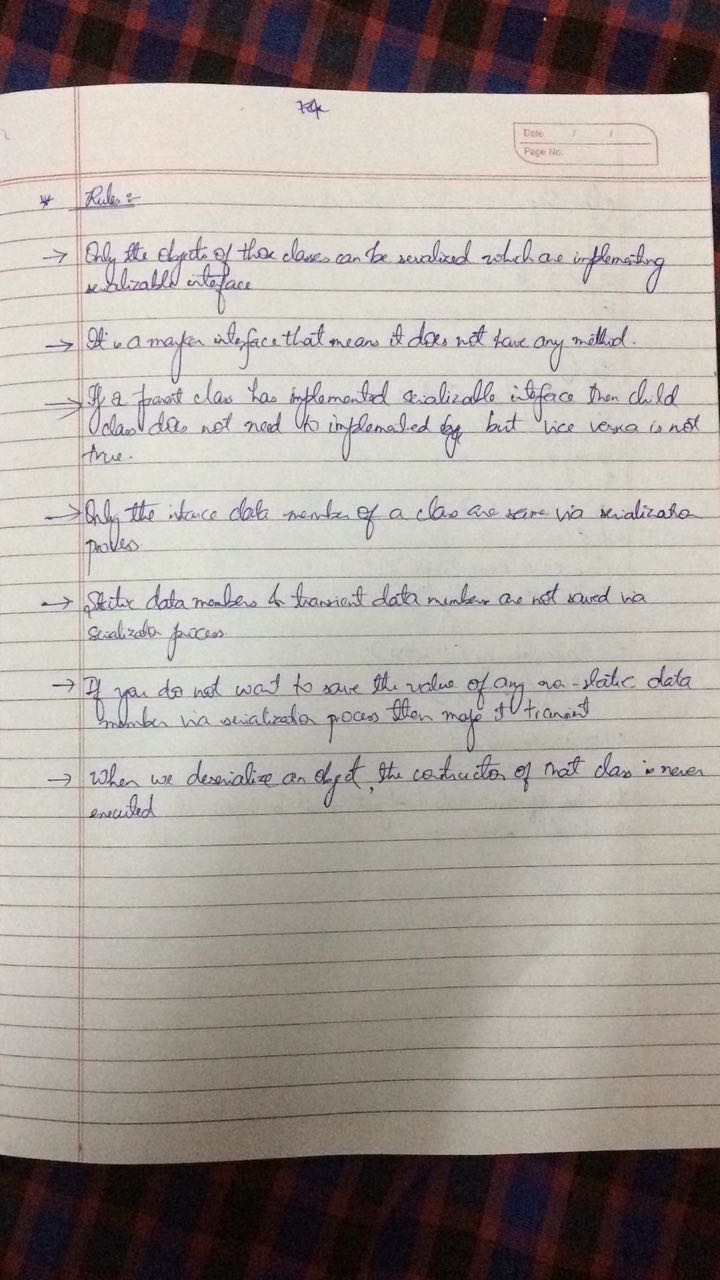 Date / /
Page No.
* Rules :-
→ Only the objects of those classes can be serialized which are implementing
serializable interface
→ It is a marker interface that means it does not have any method.
→ If a parent class has implemented serializable interface then child
class does not need to implemented but vice versa is not
true.
→ Only the intance data member of a class are via serialization
process
→ Static data members & transient data members are not saved via
serialization process
→ If you do not want to save the value of any non-static data
member via serialization process then make it transient
→ When we deserialize an object, the constructor of that class is never
executed